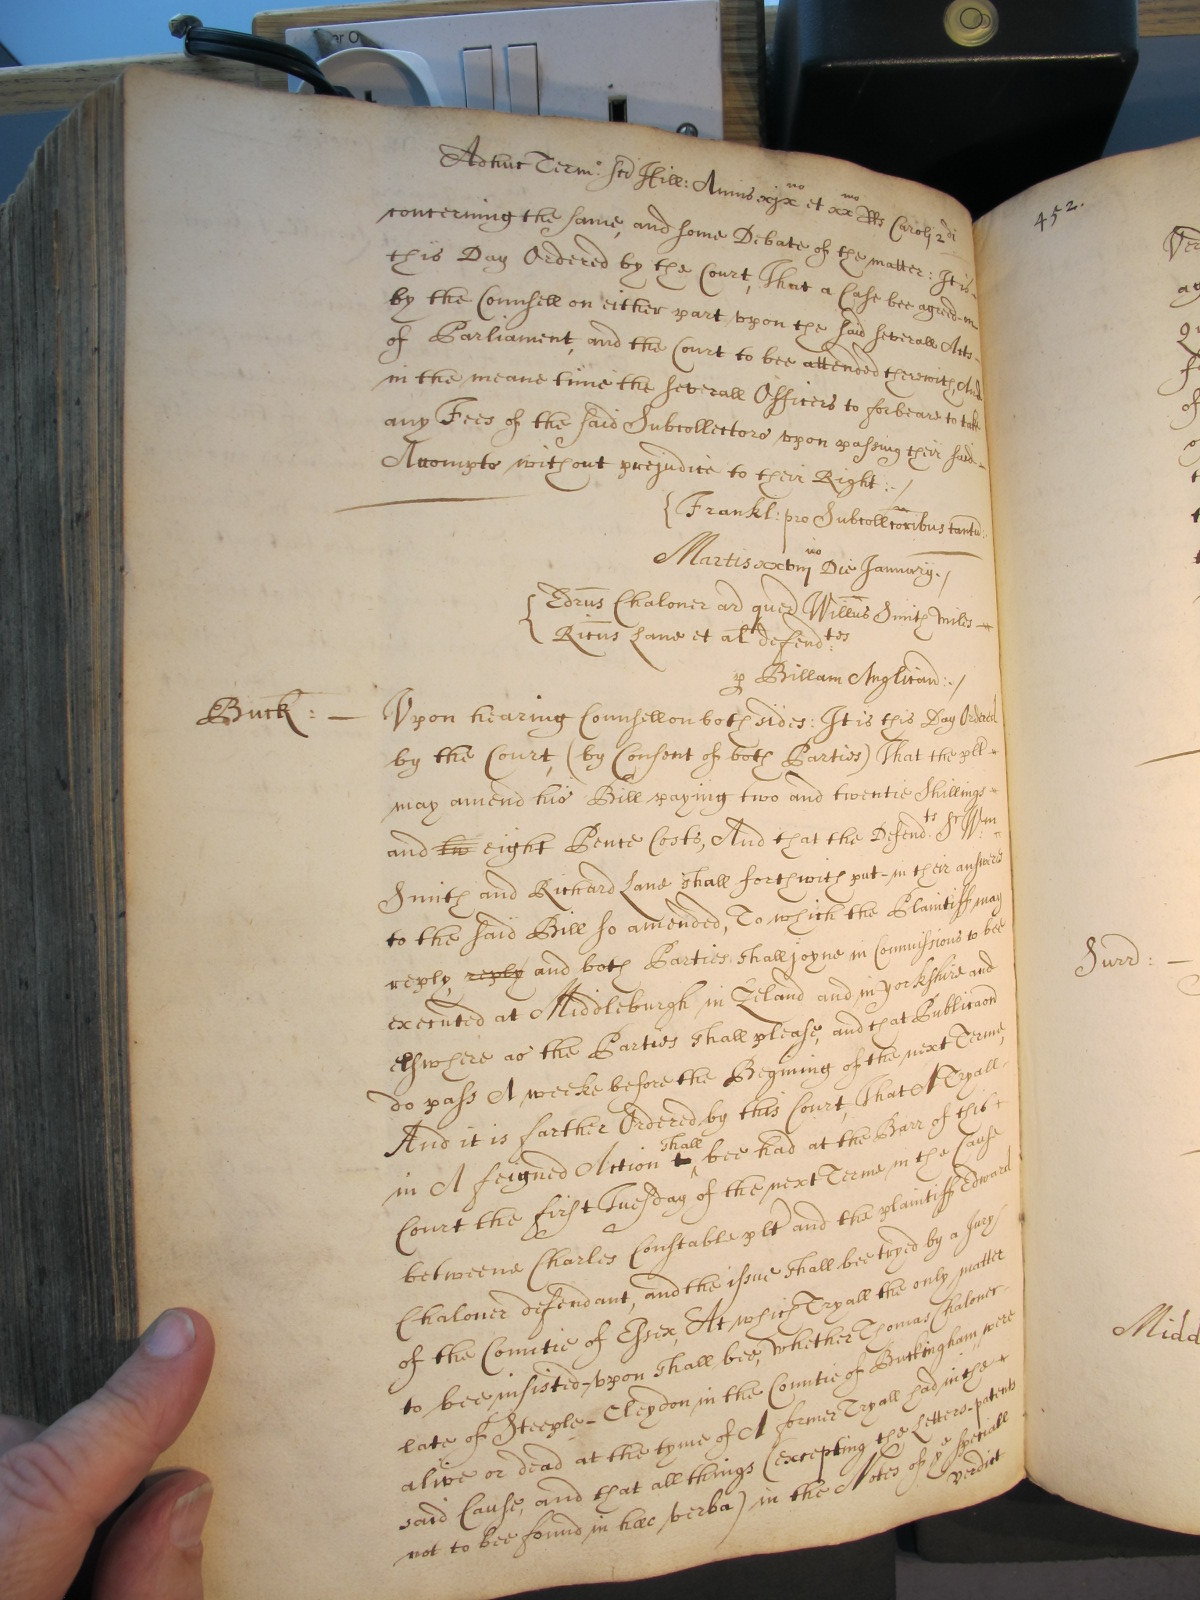 Adhuc Term: Scti Hill: Annis xix no et xx mo Rs Caroli 2di
concerning the same, and some Debate of the matter: It is
this Day Ordered by the Court, That a Case bee agreed on
by the Counsell on either part vpon the said severall Acts
of Parliament, and the Court to bee attended therewith, And
in the meane time the severall Officers to forbeare to take
any Fees of the said Subcollectors vpon passing their said
Accompts without prejudice to their Right:
Frankl: pro Subcollectoribus tantu:
Martis xxviij no Die January
Edrus Chaloner ar quer Willus Smith miles
Ricus Lane et al defend:tes
p Billam Anglican:
Buck: — Vpon hearing Counsell on both sides: It is this Day Ordered
by the Court, (by Consent of both Parties) That the plt
may amend his Bill paying two and twentie Shillings
and tw eight Pence Costs, And that the Defend:ts Sr Wm
Smith and Richard Lane shall forthwith put-in their answers
to the said Bill so amended, To which the Plaintiff may
reply, reply and both Parties shall joyne in Commissions to bee
executed at Middleburgh in Zeland and in Yorkshire and
elswhere as the Parties shall please, and that Publicaon
do pass A weeke before the Begining of the next Terme,
And it is farther Ordered by this Court, That A Tryall
in A feigned Action shall bee had at the Barr of this
Court the first Tuesday of the next Terme in the Cause
betweene Charles Constable plt and the plaintiff Edward
Chaloner defendant, and the issue shall bee tryed by a Jury
of the Countie of Essex, At which Tryall the only matter
to bee insisted-vpon shall bee, whether Thomas Chaloner
late of Steeple-Cleydon in the Countie of Buckingham, were
alive or dead at the tyme of A former Tryall had in the
said Cause, and that all things (excepting the Letters-patents
not to bee found in hæc verba) in the Notes of ye speciall
verdict
452.
Ver
ag
of
Surd: —
Midd